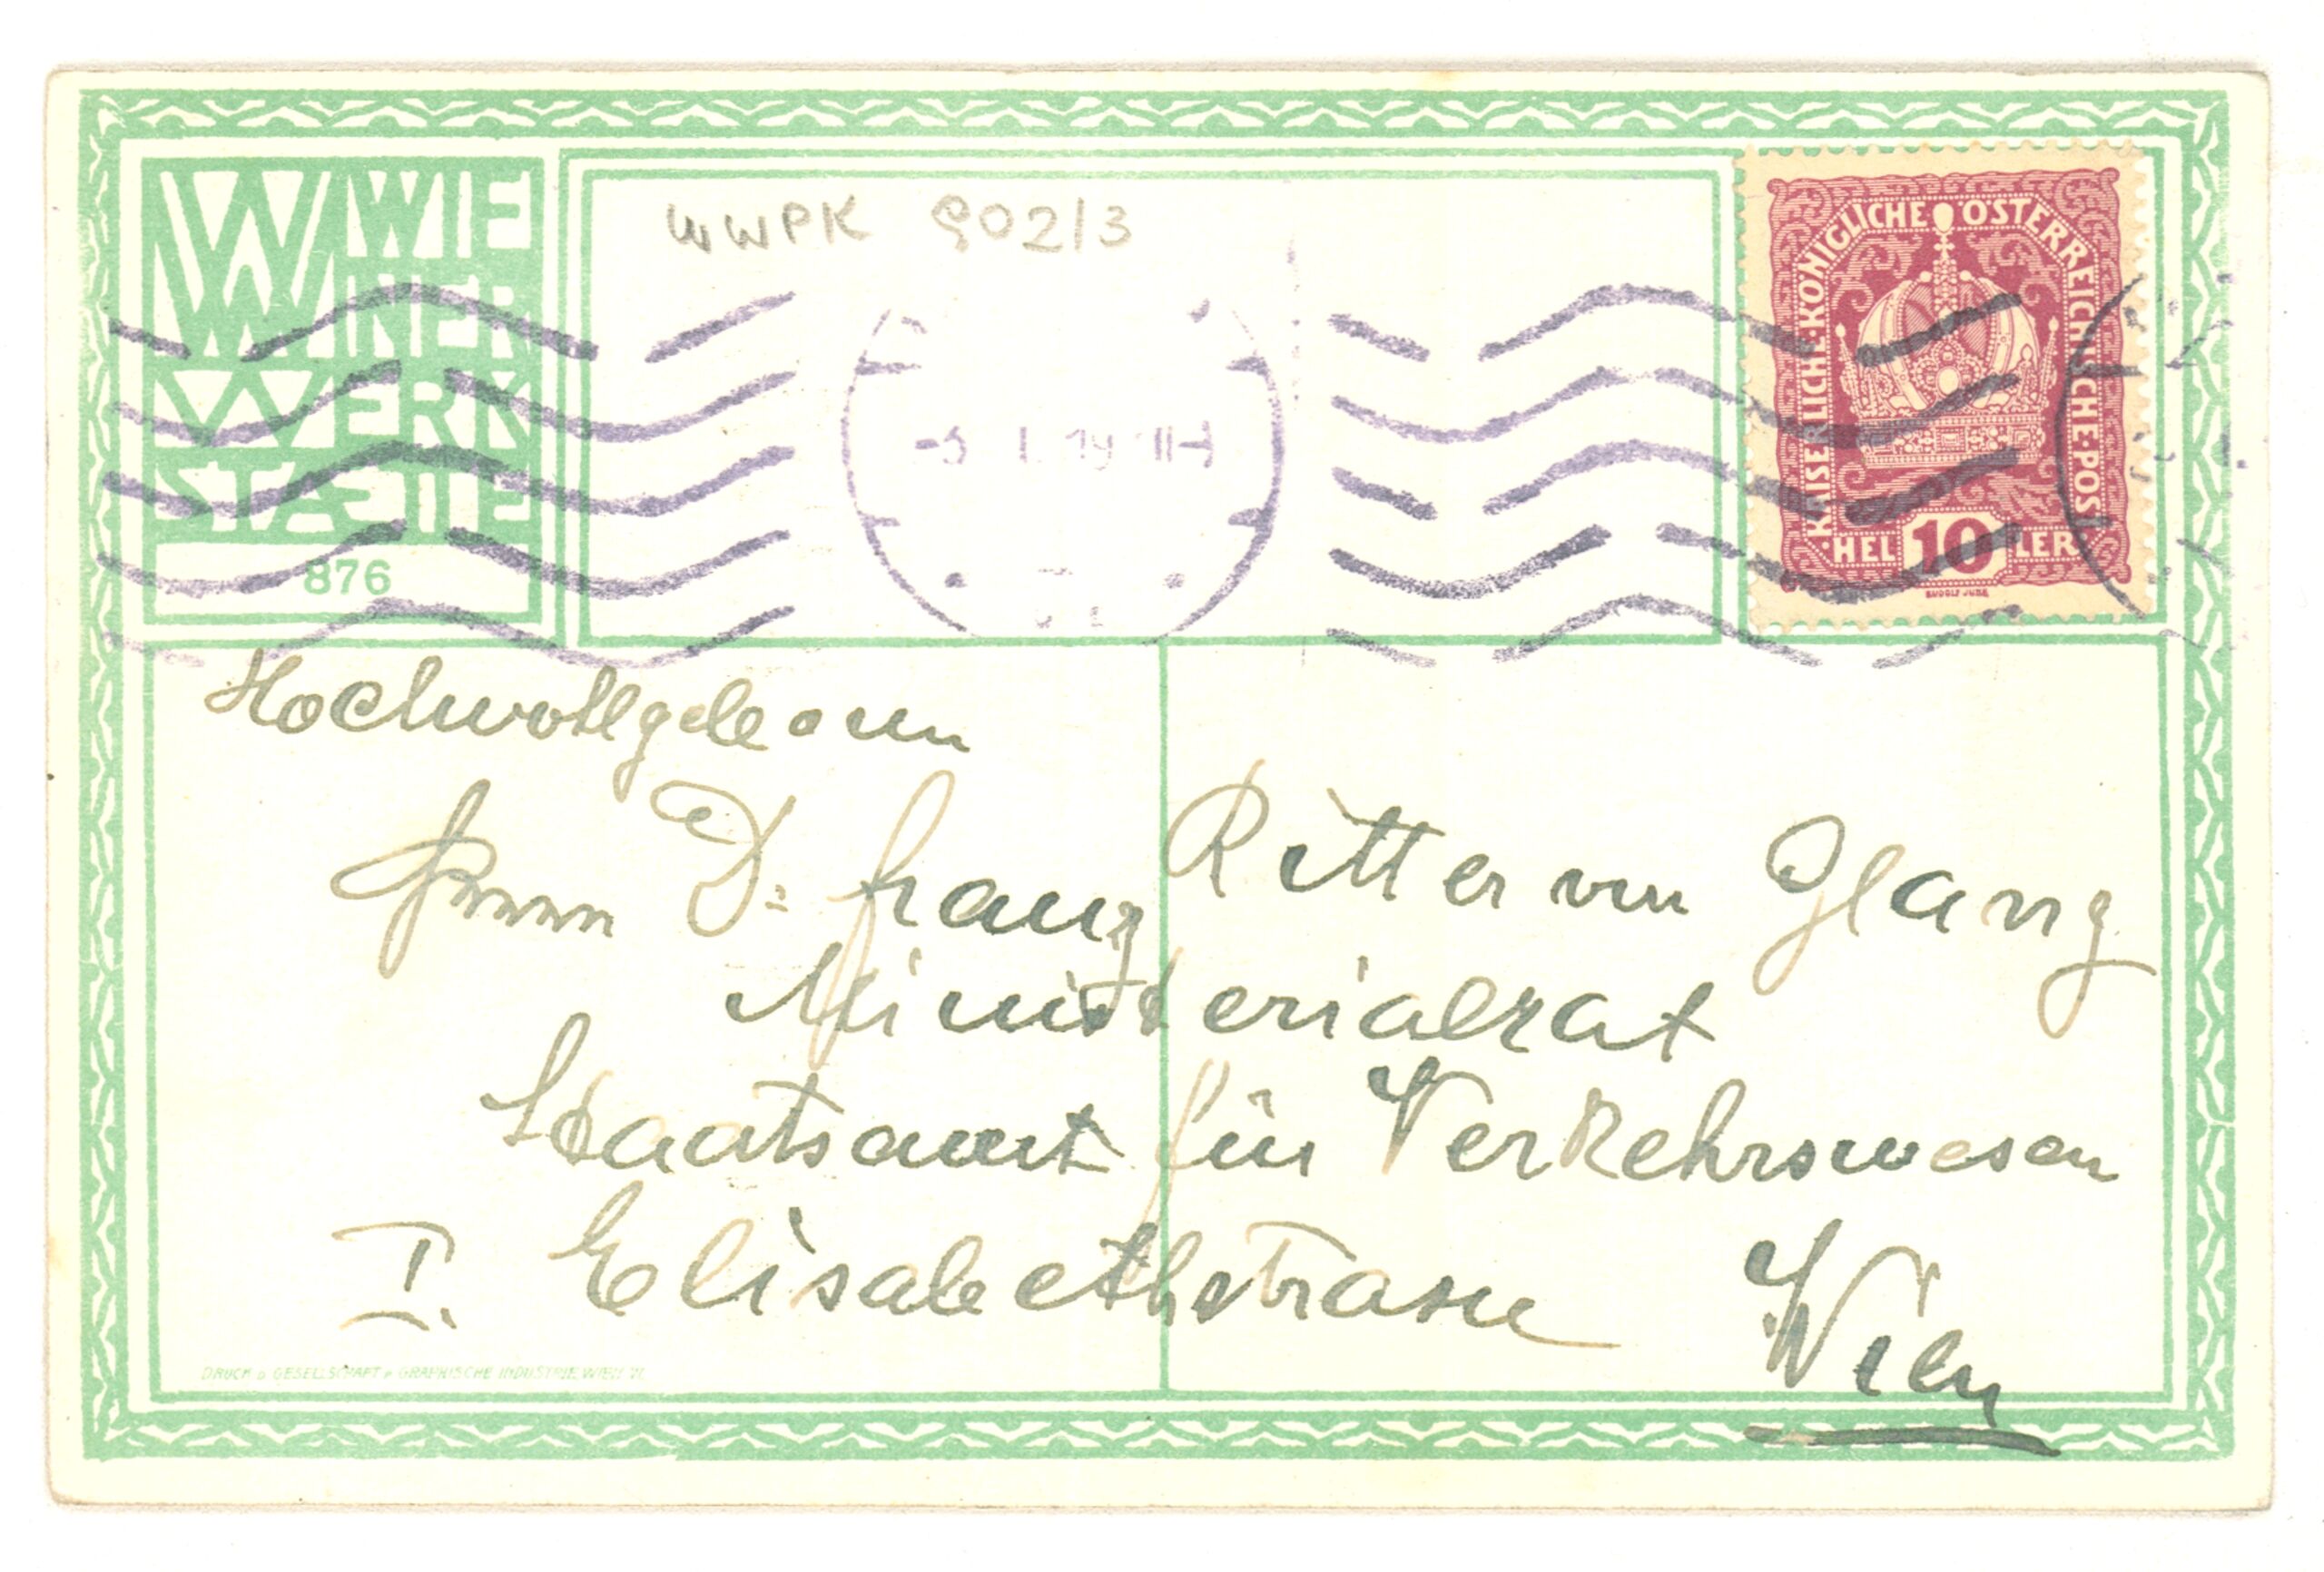 WWIE
NER
WERK
STÆTTE
876
WWPK 902/3
19
KAISERLICHE·KÖNIGLICHE·ÖSTERREICHISCHE·POST
HEL 10 LER
RUDOLF JUNK
Hochwohlgeborn
Herrn Dr. Franz Ritter von Glanz
Ministerialrat
Staatsamt für Verkehrswesen
I. Elisabethstrasse Wien
DRUCK D. GESELLSCHAFT F. GRAPHISCHE INDUSTRIE, WIEN VI.